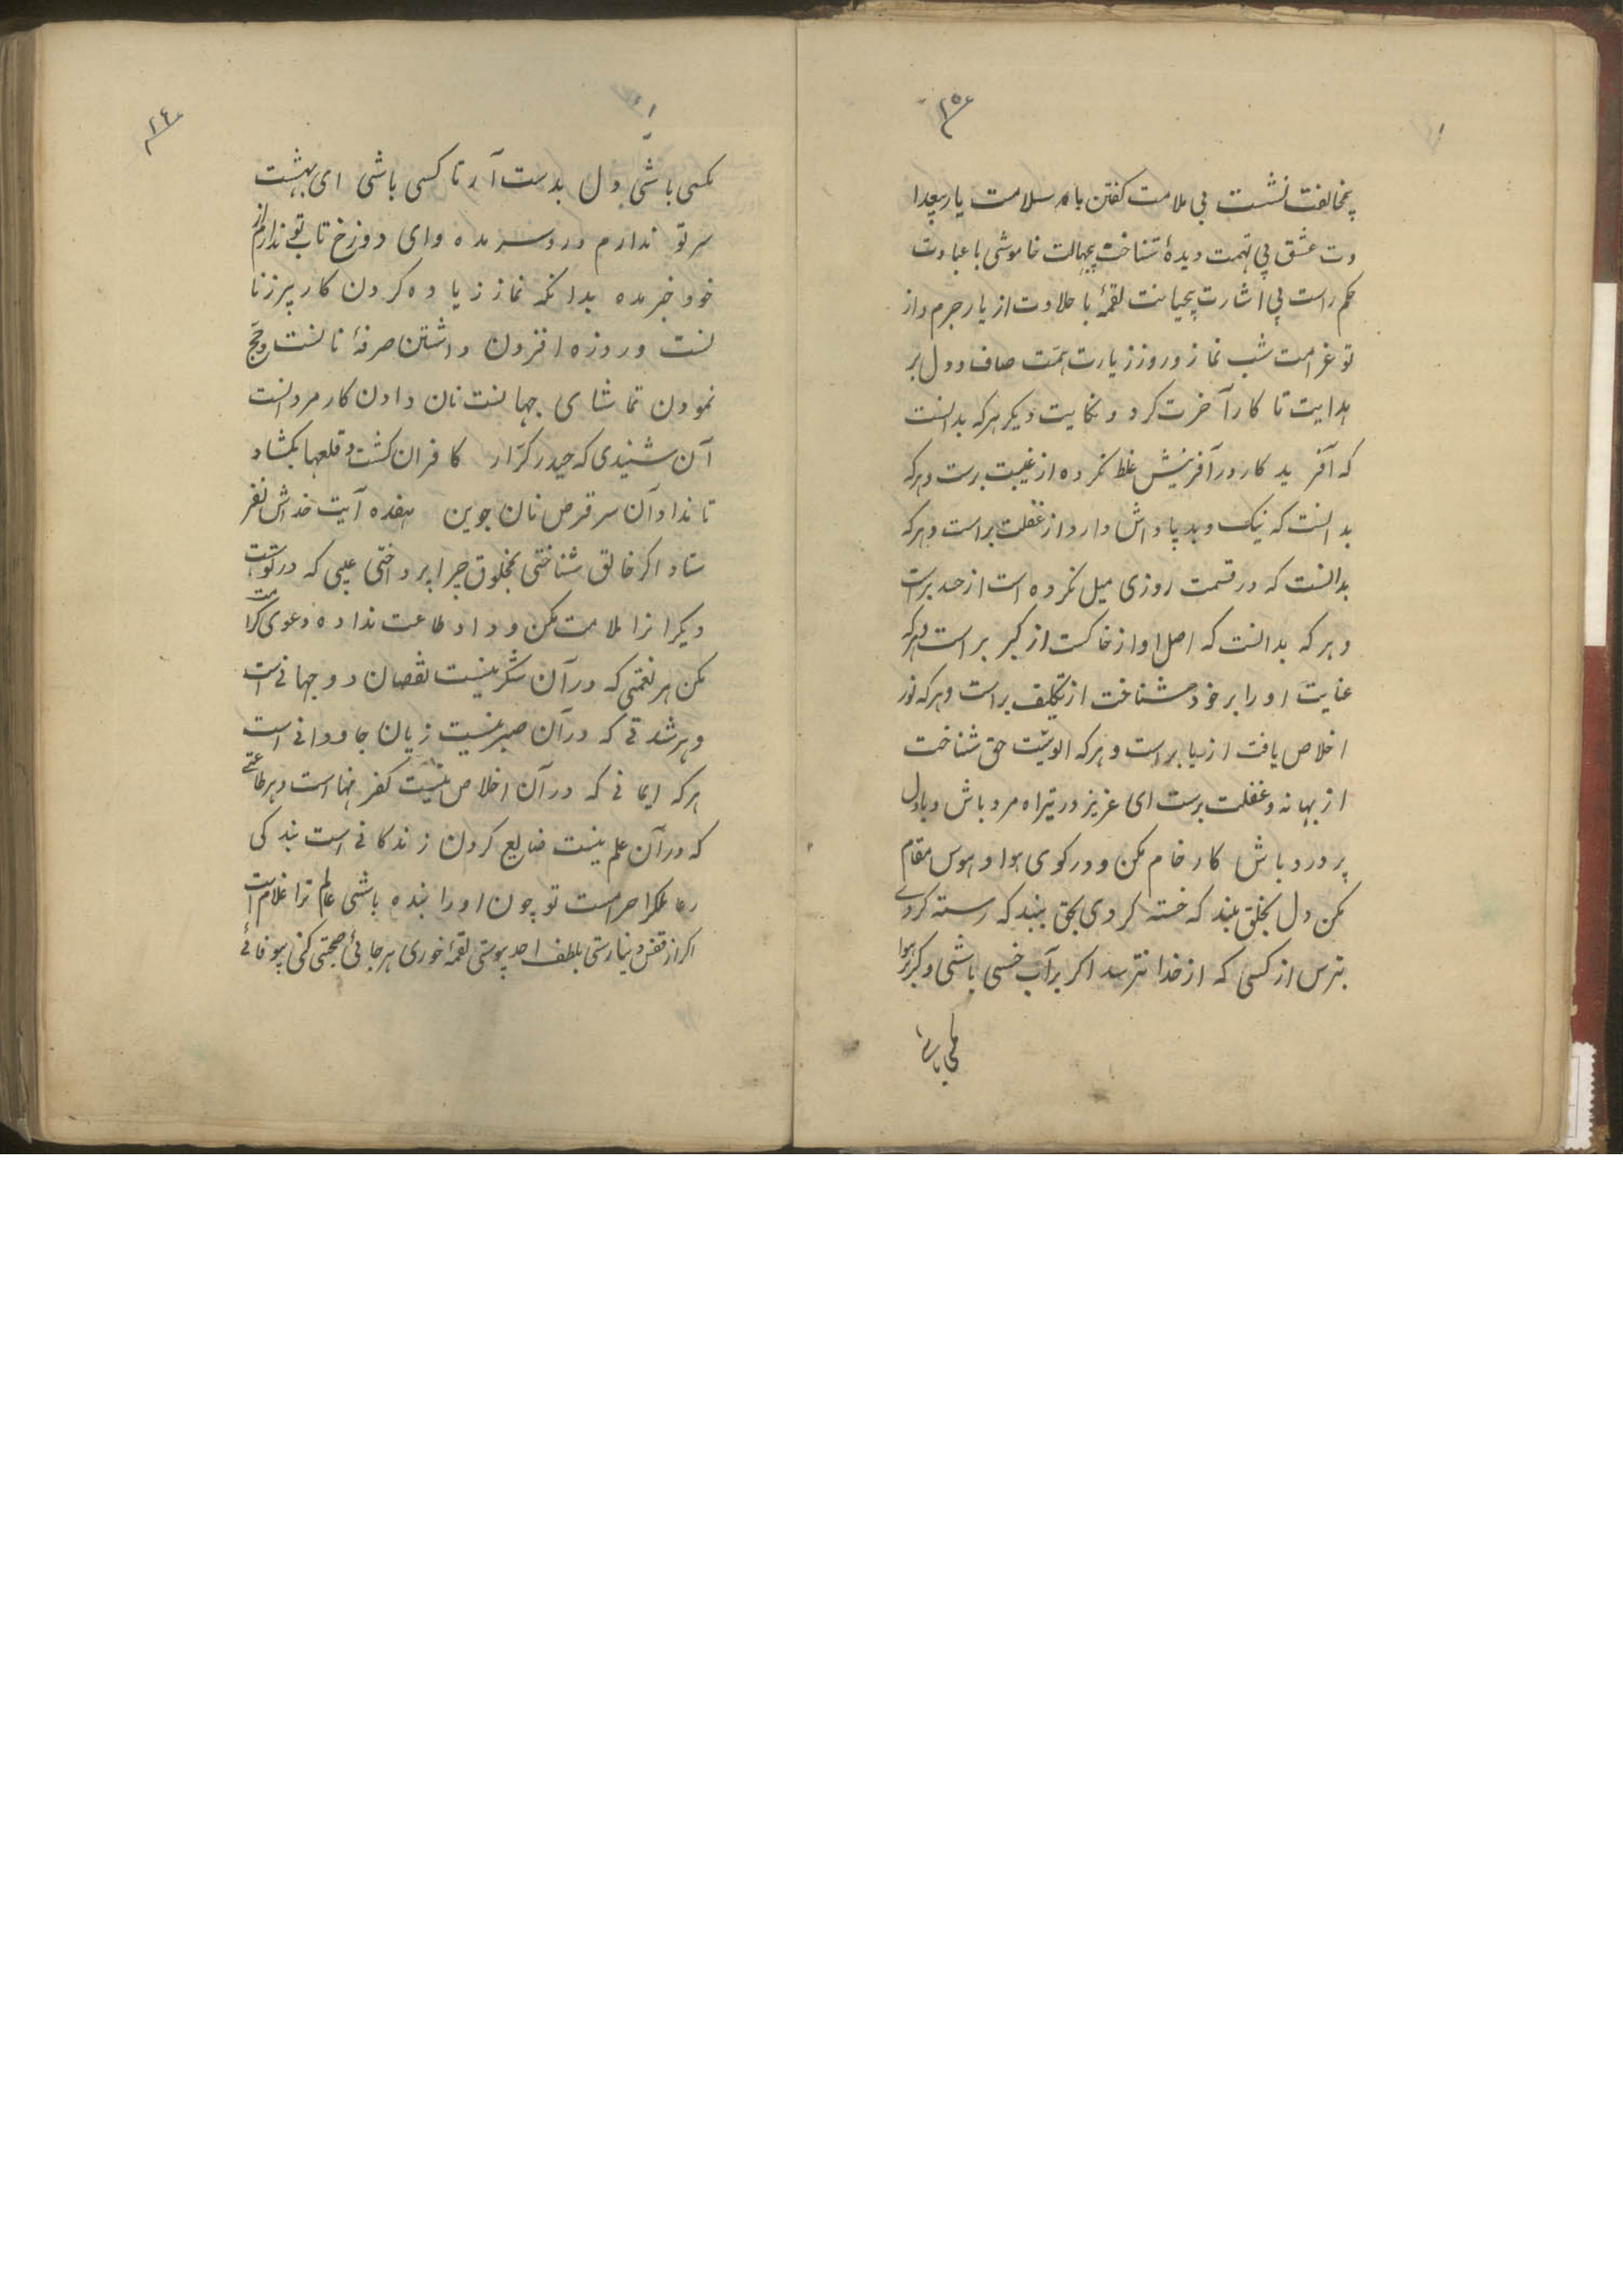 ۲۵
بمخالفت نشست بی ملامت کفتن با سلامت یار بیعدا
وت عشق بی تهمت دیدهٔ شناخت بیجهالت خاموشی با عبادت
حکم راست بی اشارت بیخیانت لقمهٔ با حلاوت از یار جرم و از
تو غرامت شب نماز و روز زیارت همّت صاف و دل پر
هدایت تا کار آخرت کرد و نکایت دیکر هرکه بدانست
که آفرید کار در آفرینش غلط نکرده از غیبت برست و هرکه
بدانست که نیک و بد پاداش دارد از غفلت براست و هرکه
بدانست که در قسمت روزی میل نکرده است از حسد برست
و هرکه بدانست که اصل او از خاکست از کبر براست و هرکه
عنایت او را بر خود شناخت از تکلیف براست و هرکه نور
اخلاص یافت از ریا براست و هرکه الوهیّت حق شناخت
از بهانه و غفلت برست ای عزیز درین راه مرد باش و با دل
پر درد باش کار خام مکن و در کوی هوا و هوس مقام
مکن دل بخلق مبند که خسته کردی بحق ببند که رسته کردے
بترس از کسی که از خدا نترسد اکر بر آب خسی باشی و کر بر هوا
۲۶
مکسی باشی دل بدست آر تا کسی باشی ای بهشت
سر تو ندارم درد سر مده و ای دوزخ تاب تو ندارم از
خود خبر مده بدانکه نماز زیاده کردن کار پیرزنا
نست و روزه افزون داشتن صرفهٔ نانست و حج
نمودن تماشای جهانست نان دادن کار مردانست
آن شنیدی که حیدر کرّار کافران کشت و قلعها بکشاد
تا نداد آن سه قرص نان جوین هفده آیت خداش نفر
ستاد اکر خالق شناختی بمخلوق چرا پرداختی عیبی که در تو است
دیکرانرا ملامت مکن و داد طاعت نداده دعوی کرامت
مکن هر نعمتی که در آن شکر نیست نقصان دو جهانی است
و هر شدتی که در آن صبر نیست زیان جاودانی است
هرکه ایمانی که در آن اخلاص نیست کفر نهان است و هر طاعتے
که در آن علم نیست ضایع کردن زندکانی است بندکی
حرامست تو چون او را بنده باشی عالم ترا غلام است
اکر از قفس دنیا رستی بلطف احد پیوستی لقمهٔ خوری هر جائی صحبتی کنی بیوفائے